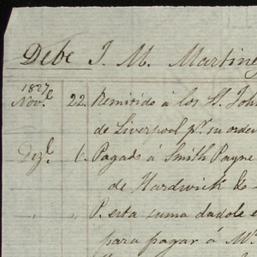 Debe J. M. Martine
1827
Nov.e 22. Remitido á los S.S. Joh
de Liverpool p.r su orden
Diz.e 1. Pagado á Smith Payne
de Hardwick &
P. esta suma dadole e
para pagar á M.r